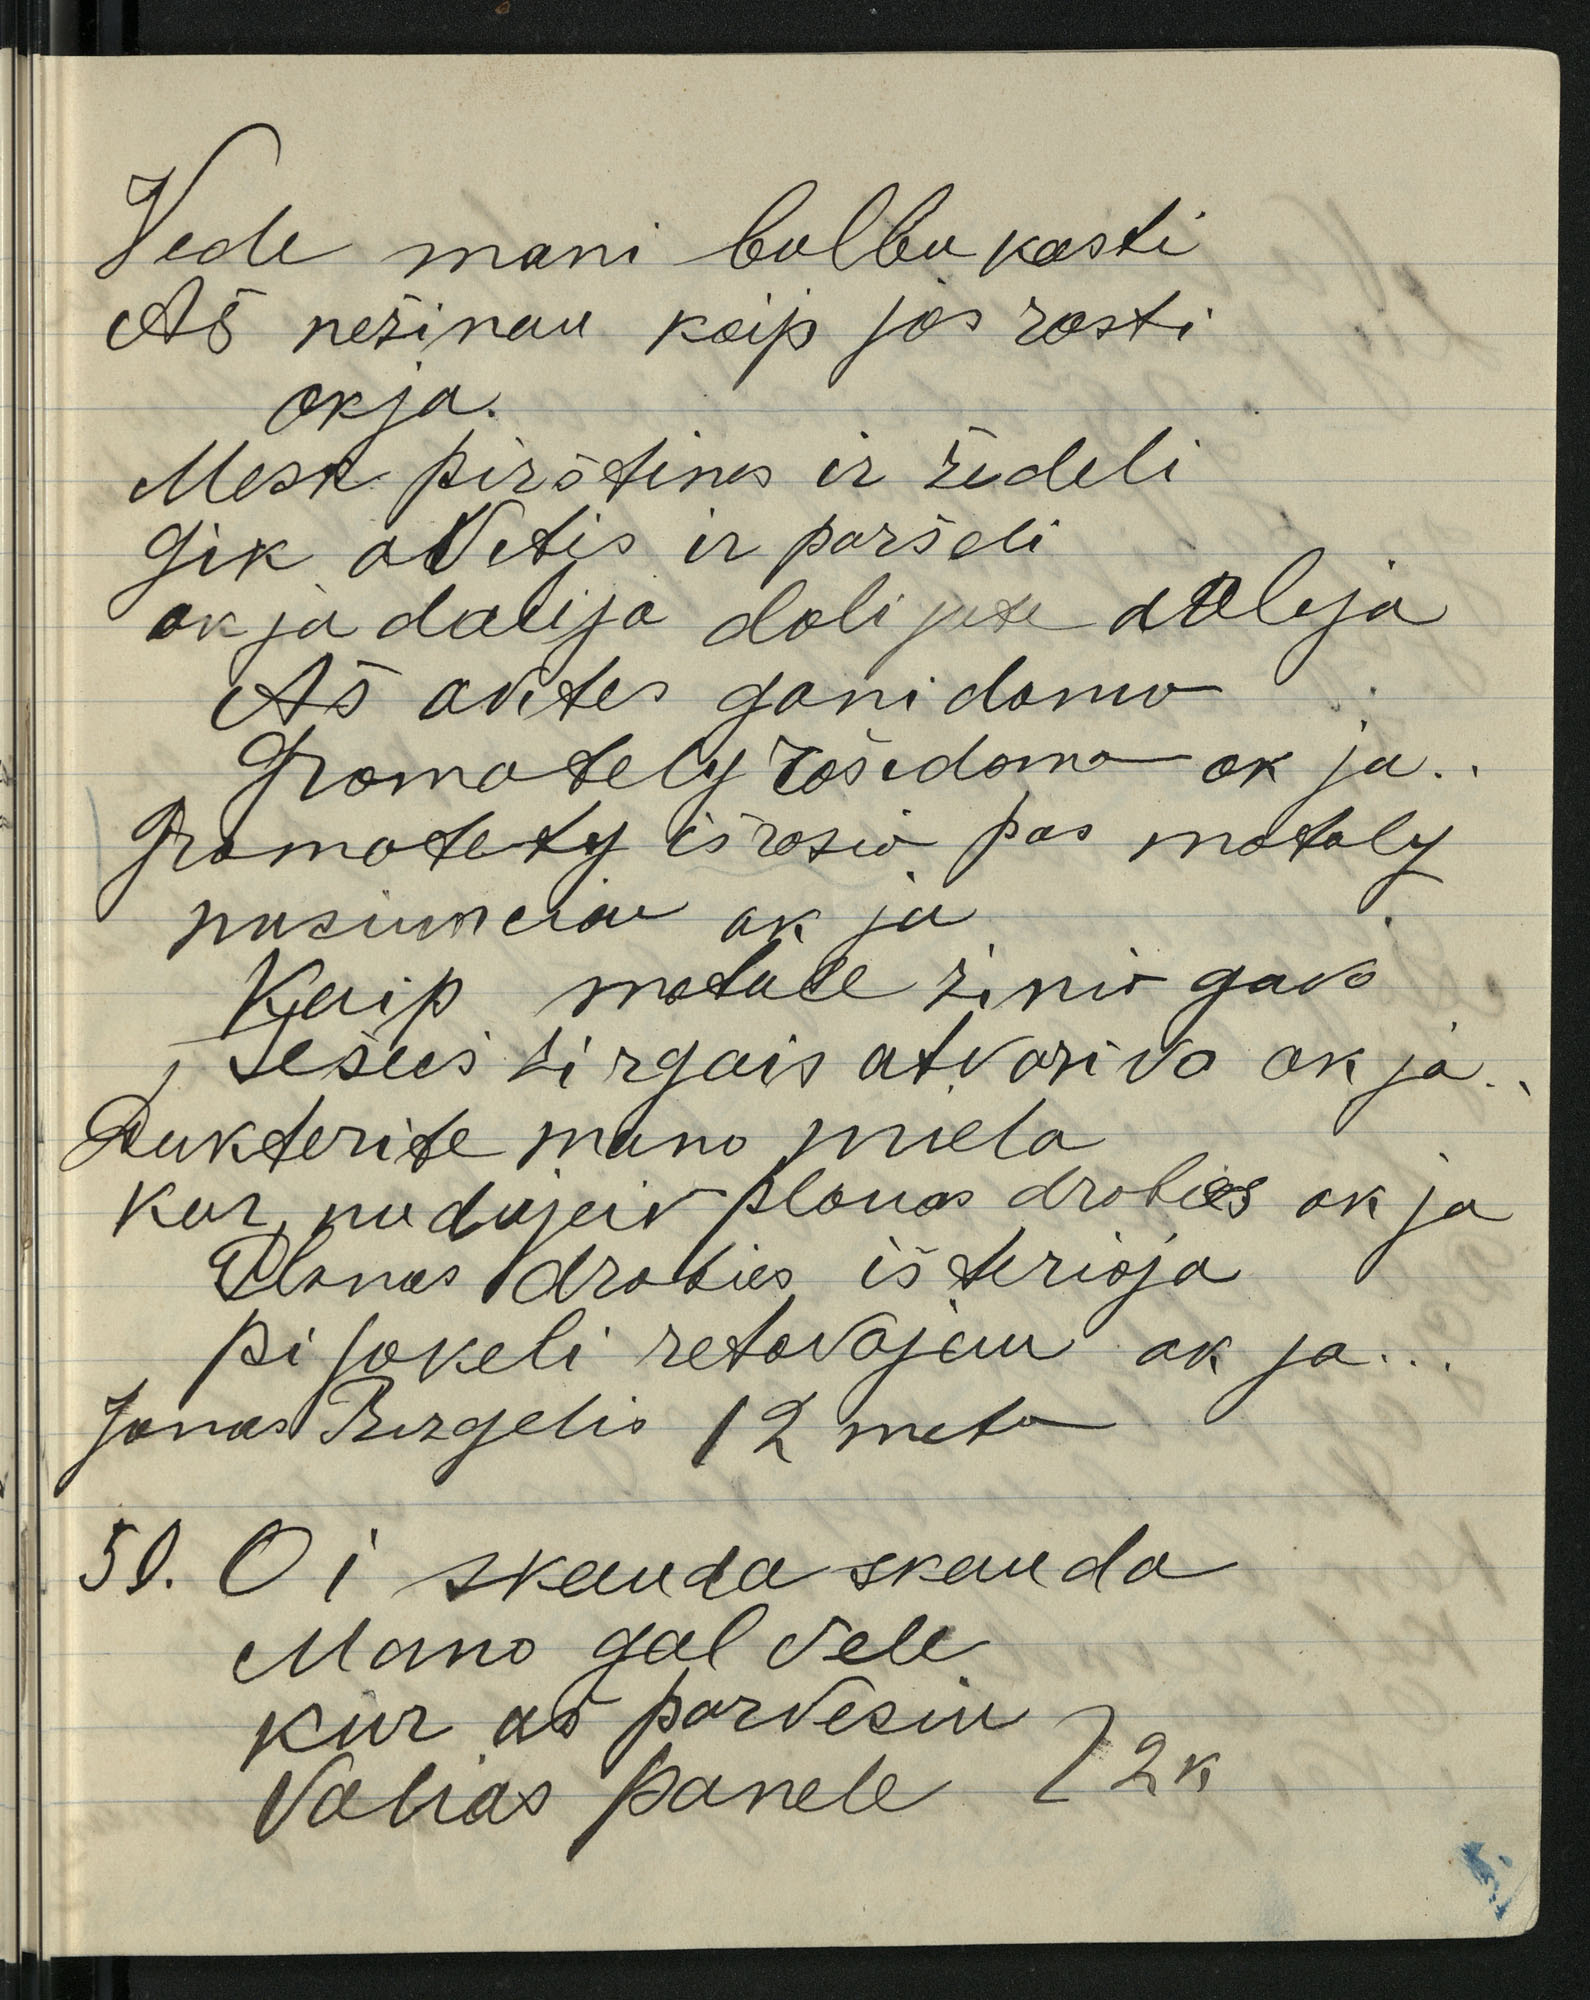 Vede mani bulbu kasti
Aš nežinau kaip jos rasti
okja.
Mesk pirštines ir žedeli
Gik aVetis ir paršeli
ak ja dalija dalijute daleja
Aš avites ganidama
Gromately rašidama ak ja..
Gromatety išrasiu pas mataly
nusiunciau ak ja
Kaip matule žinio gavo
šešeis žirgais atvariva ak ja..
Dukterite mano miela
Kur nudėjeiv plonas drobies ak ja
Plonas drobies išterioja
pi jokeli retavojau ak ja...
Jonas Burgelis 12 meta
50. Oi skauda skauda
Mano galvele
Kur aš parvesiu
Valias panele } 2 k